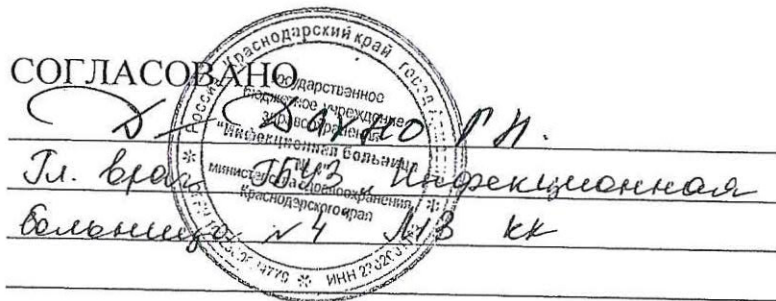 СОГЛАСОВАНО
Дахно Г.Н.
Гл. врач ГБУЗ „Инфекционная
больница №4" МЗ КК
Россия Краснодарский край город
государственное
бюджетное учреждение
здравоохранения
"Инфекционная больница
министерства здравоохранения
Краснодарского края
ИНН